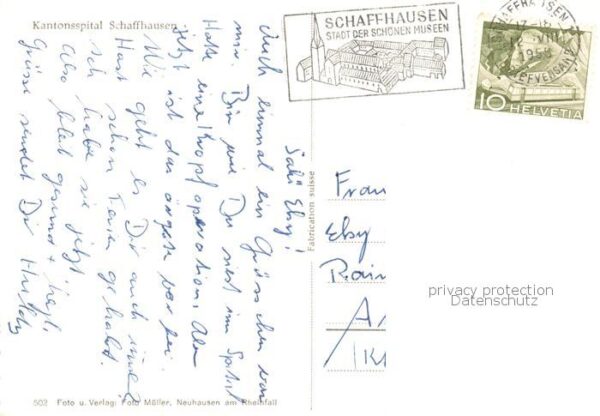 Kantonsspital Schaffhausen
SCHAFFHAUSEN
STADT DER SCHÖNEN MUSEEN
SCHAFFHAUSEN
17
VIII
1958
BRIEFVERSAND
10 HELVETIA
Sali Eby!
Auch einmal ein Grüsschen von
mir. Bin wie Du siest im Spital
Hatte eine Kropfoperation. Aber
jetzt ist das ärgste vorbei.
Wie geht es Dir auch immer?
Hast schon Ferien gehabt.
ich habe sie jetzt.
Also bleib gesund + hejt.
Grüsse sendet Dir Huldy
Fabrication suisse
Frau
Eby
Rain
privacy protection
Datenschutz
502 Foto u. Verlag: Foto Müller, Neuhausen am Rheinfall